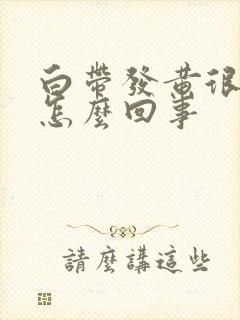 白帶發黃很
怎麼回事
請麼講這些